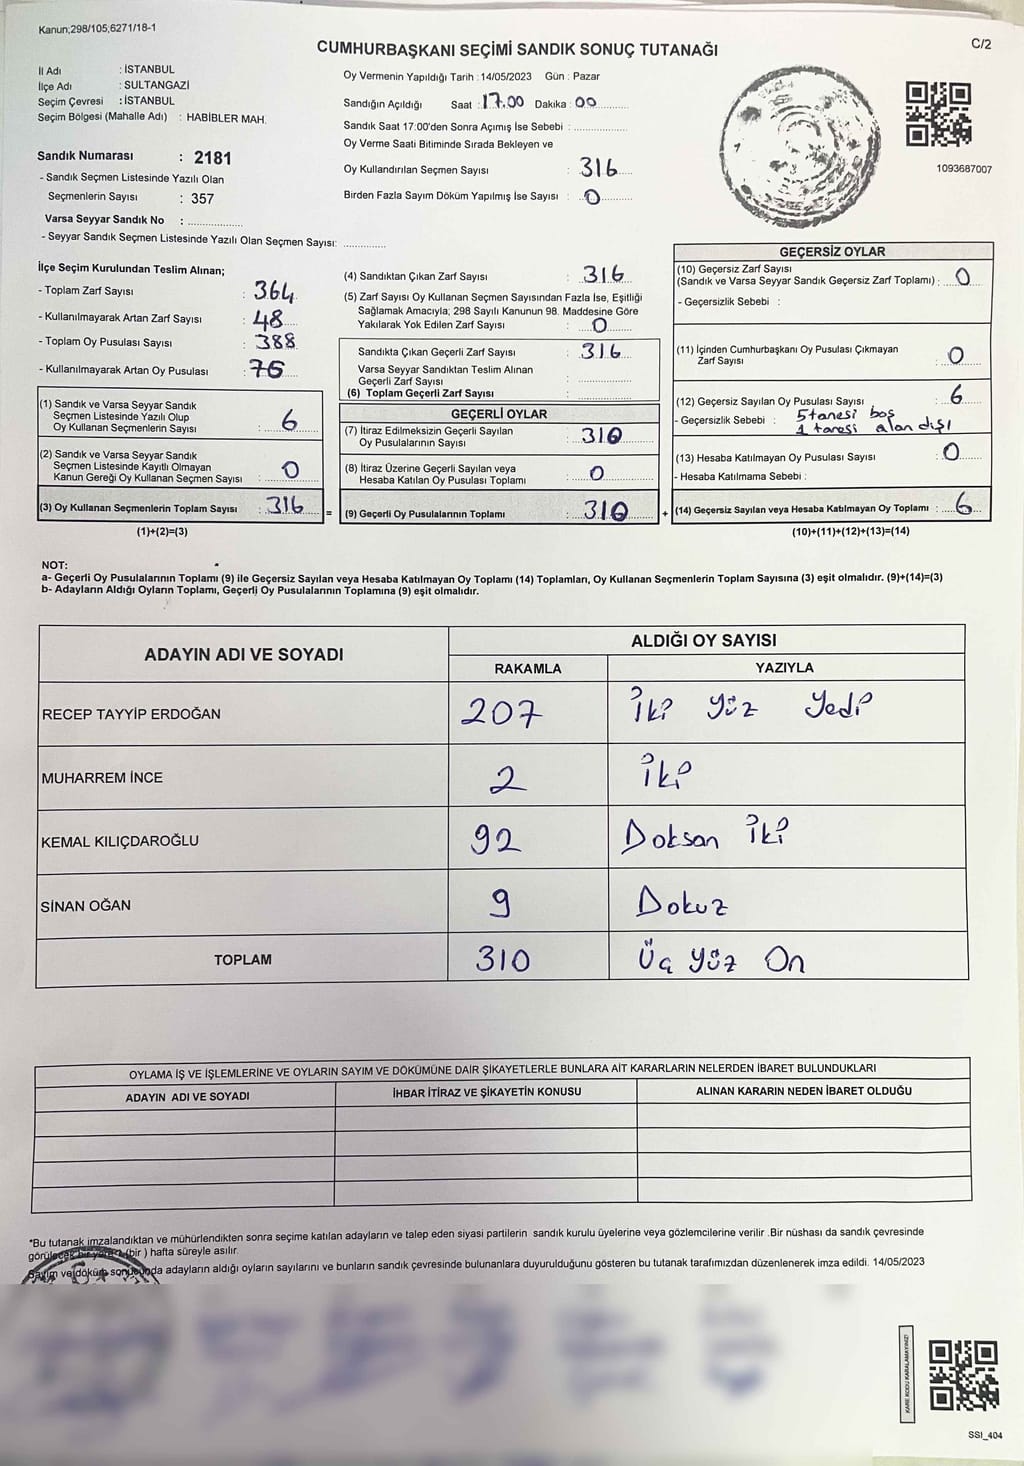 Kanun;298/105;6271/18-1
C/2
CUMHURBAŞKANI SEÇİMİ SANDIK SONUÇ TUTANAĞI
İl Adı : İSTANBUL
İlçe Adı : SULTANGAZİ
Seçim Çevresi : İSTANBUL
Seçim Bölgesi (Mahalle Adı) : HABİBLER MAH.
Sandık Numarası : 2181
- Sandık Seçmen Listesinde Yazılı Olan
Seçmenlerin Sayısı : 357
Varsa Seyyar Sandık No : ..................
- Seyyar Sandık Seçmen Listesinde Yazılı Olan Seçmen Sayısı: ..............
Oy Vermenin Yapıldığı Tarih : 14/05/2023 Gün : Pazar
Sandığın Açıldığı Saat : 17.00 Dakika : 00
Sandık Saat 17:00'den Sonra Açımış İse Sebebi : ..................
Oy Verme Saati Bitiminde Sırada Bekleyen ve
Oy Kullandırılan Seçmen Sayısı : 316
Birden Fazla Sayım Döküm Yapılmış İse Sayısı : 0
1093687007
İlçe Seçim Kurulundan Teslim Alınan;
- Toplam Zarf Sayısı : 364
- Kullanılmayarak Artan Zarf Sayısı : 48
- Toplam Oy Pusulası Sayısı : 388
- Kullanılmayarak Artan Oy Pusulası : 76
(1) Sandık ve Varsa Seyyar Sandık
Seçmen Listesinde Yazılı Olup
Oy Kullanan Seçmenlerin Sayısı : 6
(2) Sandık ve Varsa Seyyar Sandık
Seçmen Listesinde Kayıtlı Olmayan
Kanun Gereği Oy Kullanan Seçmen Sayısı : 0
(3) Oy Kullanan Seçmenlerin Toplam Sayısı : 316 =
(1)+(2)=(3)
(4) Sandıktan Çıkan Zarf Sayısı : 316
(5) Zarf Sayısı Oy Kullanan Seçmen Sayısından Fazla İse, Eşitliği
Sağlamak Amacıyla; 298 Sayılı Kanunun 98. Maddesine Göre
Yakılarak Yok Edilen Zarf Sayısı : 0
Sandıkta Çıkan Geçerli Zarf Sayısı : 316
Varsa Seyyar Sandıktan Teslim Alınan
Geçerli Zarf Sayısı : ..................
(6) Toplam Geçerli Zarf Sayısı : ..................
GEÇERLİ OYLAR
(7) İtiraz Edilmeksizin Geçerli Sayılan
Oy Pusulalarının Sayısı : 310
(8) İtiraz Üzerine Geçerli Sayılan veya
Hesaba Katılan Oy Pusulası Toplamı : 0
(9) Geçerli Oy Pusulalarının Toplamı : 310 +
GEÇERSİZ OYLAR
(10) Geçersiz Zarf Sayısı
(Sandık ve Varsa Seyyar Sandık Geçersiz Zarf Toplamı) : 0
- Geçersizlik Sebebi :
(11) İçinden Cumhurbaşkanı Oy Pusulası Çıkmayan
Zarf Sayısı : 0
(12) Geçersiz Sayılan Oy Pusulası Sayısı : 6
- Geçersizlik Sebebi : 5 tanesi boş
1 tanesi alan dışı
(13) Hesaba Katılmayan Oy Pusulası Sayısı : 0
- Hesaba Katılmama Sebebi :
(14) Geçersiz Sayılan veya Hesaba Katılmayan Oy Toplamı : 6
(10)+(11)+(12)+(13)=(14)
NOT:
a- Geçerli Oy Pusulalarının Toplamı (9) ile Geçersiz Sayılan veya Hesaba Katılmayan Oy Toplamı (14) Toplamları, Oy Kullanan Seçmenlerin Toplam Sayısına (3) eşit olmalıdır. (9)+(14)=(3)
b- Adayların Aldığı Oyların Toplamı, Geçerli Oy Pusulalarının Toplamına (9) eşit olmalıdır.
ADAYIN ADI VE SOYADI ALDIĞI OY SAYISI
RAKAMLA YAZIYLA
RECEP TAYYİP ERDOĞAN 207 İki Yüz Yedi
MUHARREM İNCE 2 İki
KEMAL KILIÇDAROĞLU 92 Doksan İki
SİNAN OĞAN 9 Dokuz
TOPLAM 310 Üç Yüz On
OYLAMA İŞ VE İŞLEMLERİNE VE OYLARIN SAYIM VE DÖKÜMÜNE DAİR ŞİKAYETLERLE BUNLARA AİT KARARLARIN NELERDEN İBARET BULUNDUKLARI
ADAYIN ADI VE SOYADI İHBAR İTİRAZ VE ŞİKAYETİN KONUSU ALINAN KARARIN NEDEN İBARET OLDUĞU
*Bu tutanak imzalandıktan ve mühürlendikten sonra seçime katılan adayların ve talep eden siyasi partilerin sandık kurulu üyelerine veya gözlemcilerine verilir .Bir nüshası da sandık çevresinde
görülecek bir yere 1 (bir ) hafta süreyle asılır.
Sayım ve döküm sonucunda adayların aldığı oyların sayılarını ve bunların sandık çevresinde bulunanlara duyurulduğunu gösteren bu tutanak tarafımızdan düzenlenerek imza edildi. 14/05/2023
KARE KODU KARALAMAYINIZ!
SSI_404